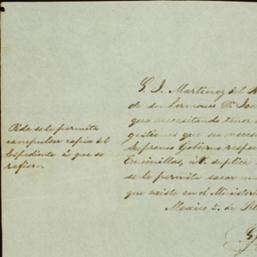 Pide se le permita
compulsar copia del
Espediente á que se
refiere.
G. J. Martinez del
de su hermano D. José
que necesitando tener
gestiones que sea necesa
Supremo Gobierno respec
Encinillas, á V. suplica
se le permita sacar una
que existe en el Ministerio
Mexico 2. de